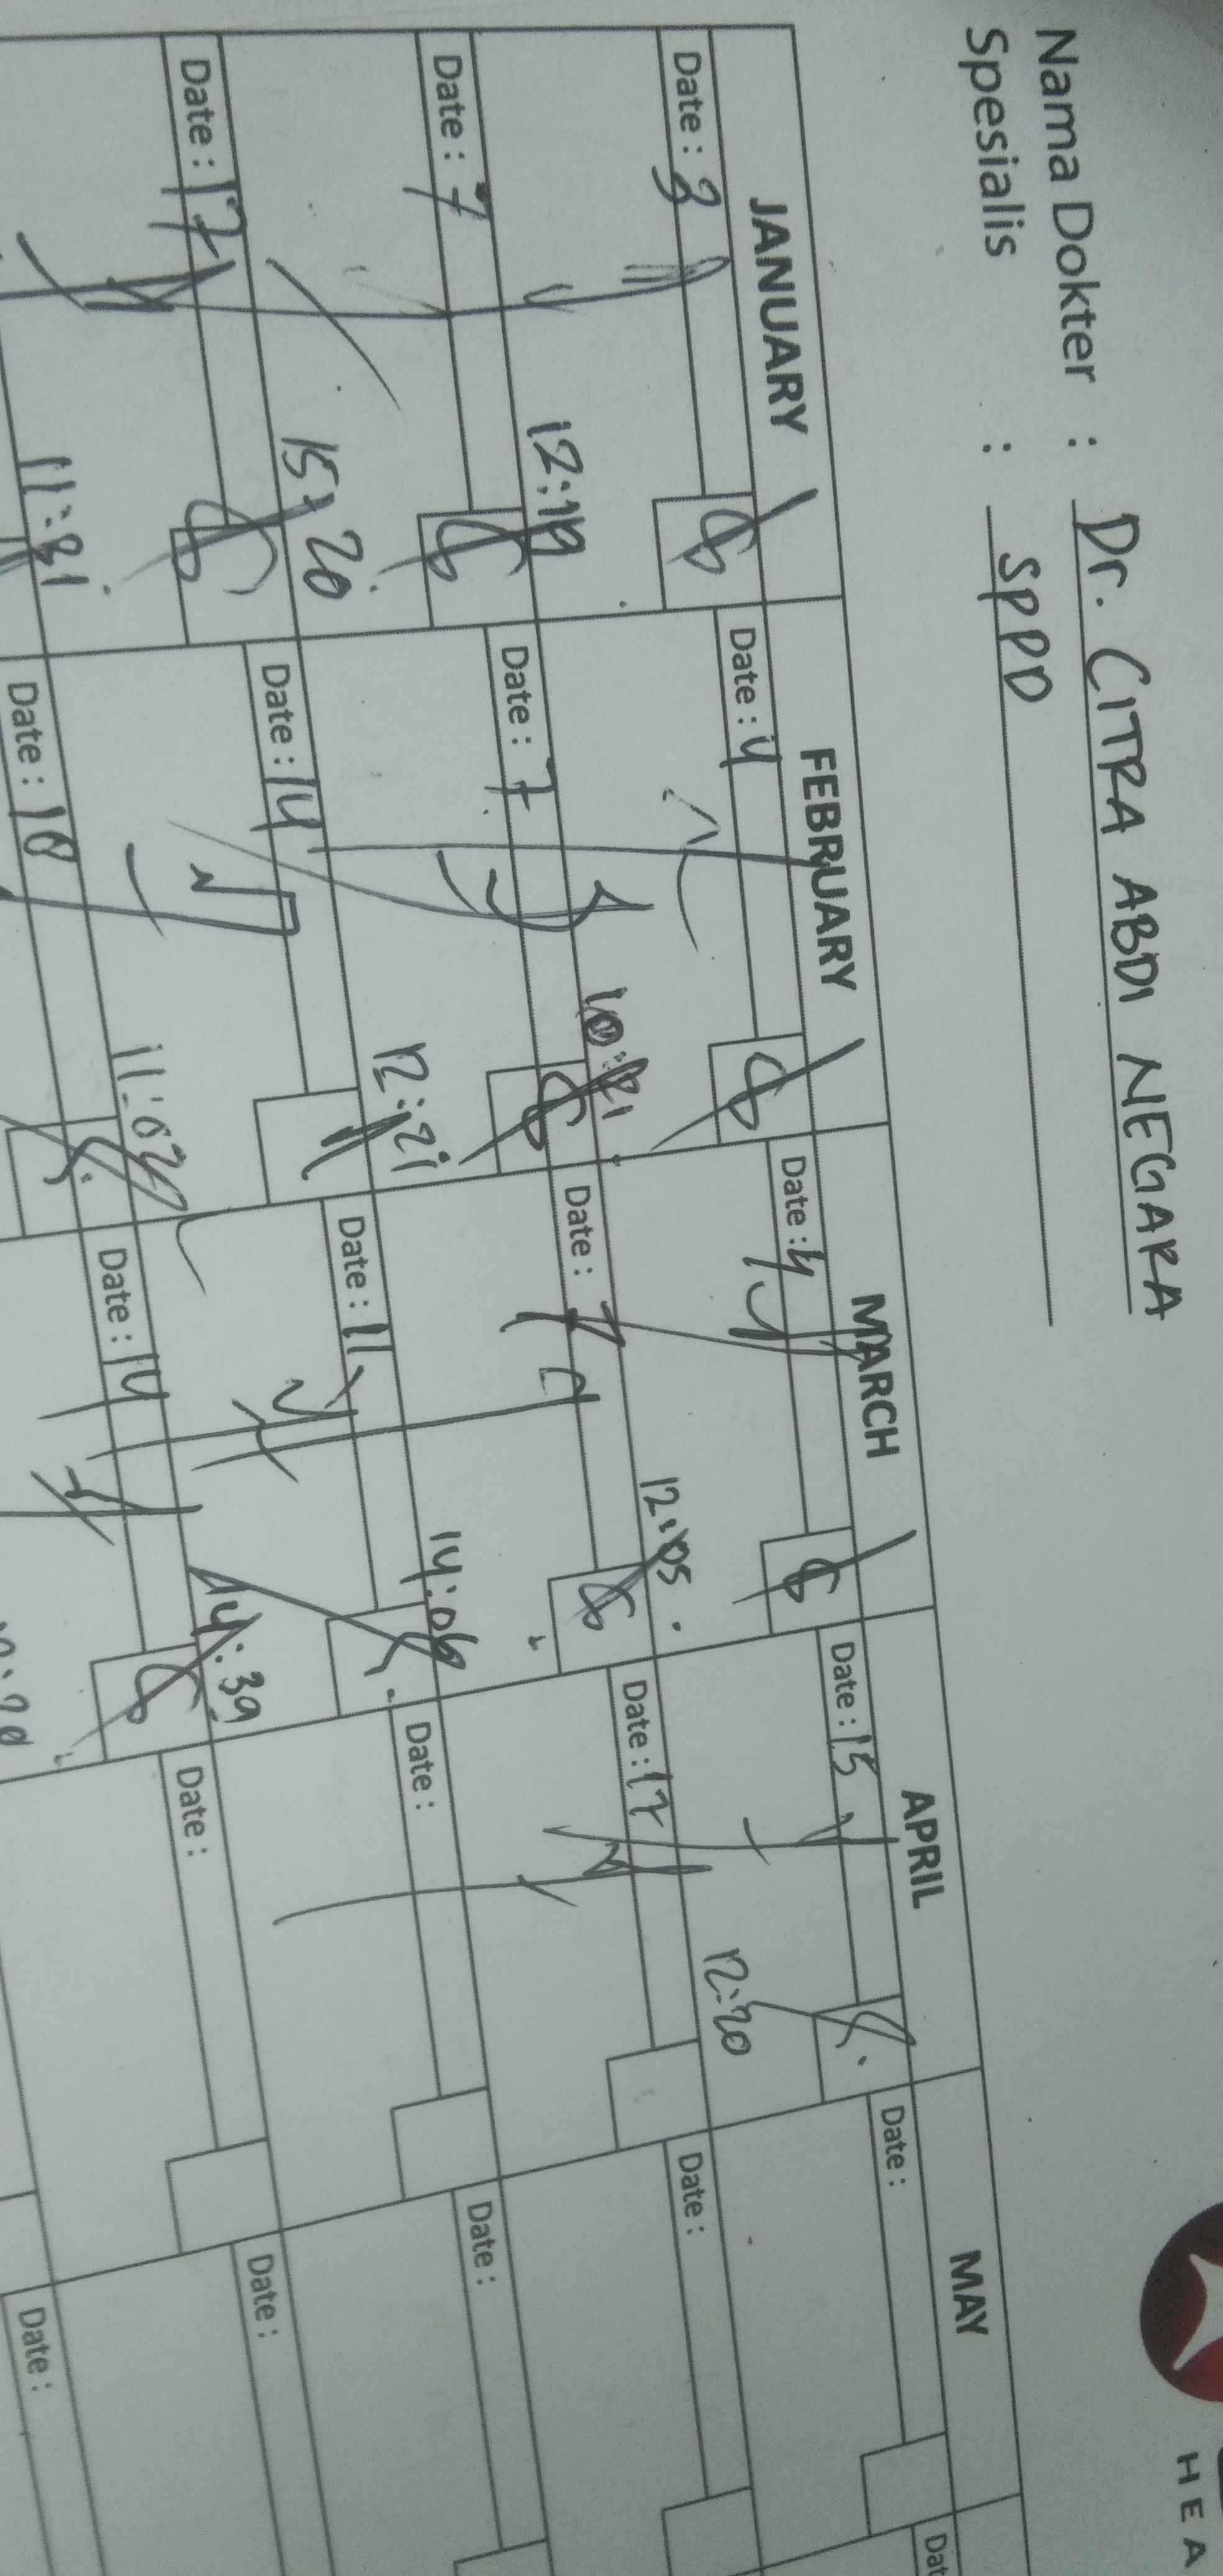 Nama Dokter : Dr. CITRA ABDI NEGARA
Spesialis : SPPD
JANUARY FEBRUARY MARCH APRIL MAY
Date : 3 Date : 4 Date : 4 Date : 15 Date :
12:19 10:21 12:05 12:20
Date : 7 Date : 7 Date : 7 Date : 17 Date :
15:20 12:21 14:06
Date : 17 Date : 14 Date : 11 Date : Date :
11:31 11:02 14:39
Date : 18 Date : 14 Date : Date :
Date :
HEA